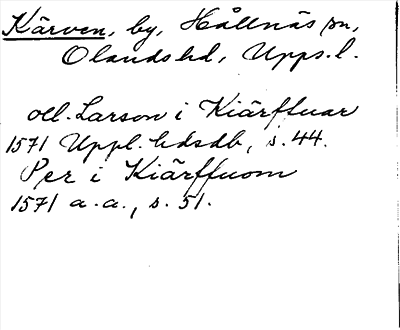 Kärven, by, Hållnäs sn,
Olands hd, Upps. l.
Oll. Larson i Kiärffuar
1571 Uppl. hdsdb, s. 44.
Per i Kiärffuom
1571 a. a., s. 51.